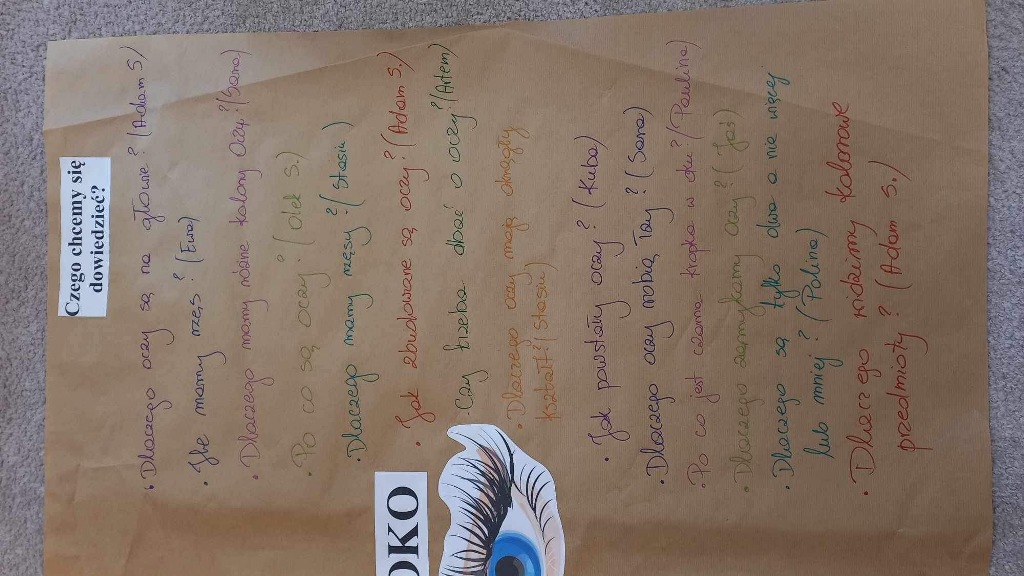 Czego chcemy się
dowiedzieć?
• Dlaczego oczy są na głowie? (Adam S.)
• Ile mamy rzęs? (Ewa)
• Dlaczego mamy różne kolory oczu? (Sara)
• Po co są oczy? (Olek S.)
• Dlaczego mamy rzęsy? (Stasiu)
• Jak zbudowane są oczy? (Adam S.)
• Czy trzeba dbać o oczy? (Artem)
• Dlaczego oczy mają okrągły
kształt? (Stasiu)
• Jak powstały oczy? (Kuba)
• Dlaczego oczy robią łzy? (Sara)
• Po co jest czarna kropka w oku? (Paulina)
• Dlaczego zamykamy oczy? (Jaś)
• Dlaczego są tylko dwa a nie więcej
lub mniej? (Polina)
• Dlaczego widzimy kolorowe
przedmioty? (Adam S.)
OKO